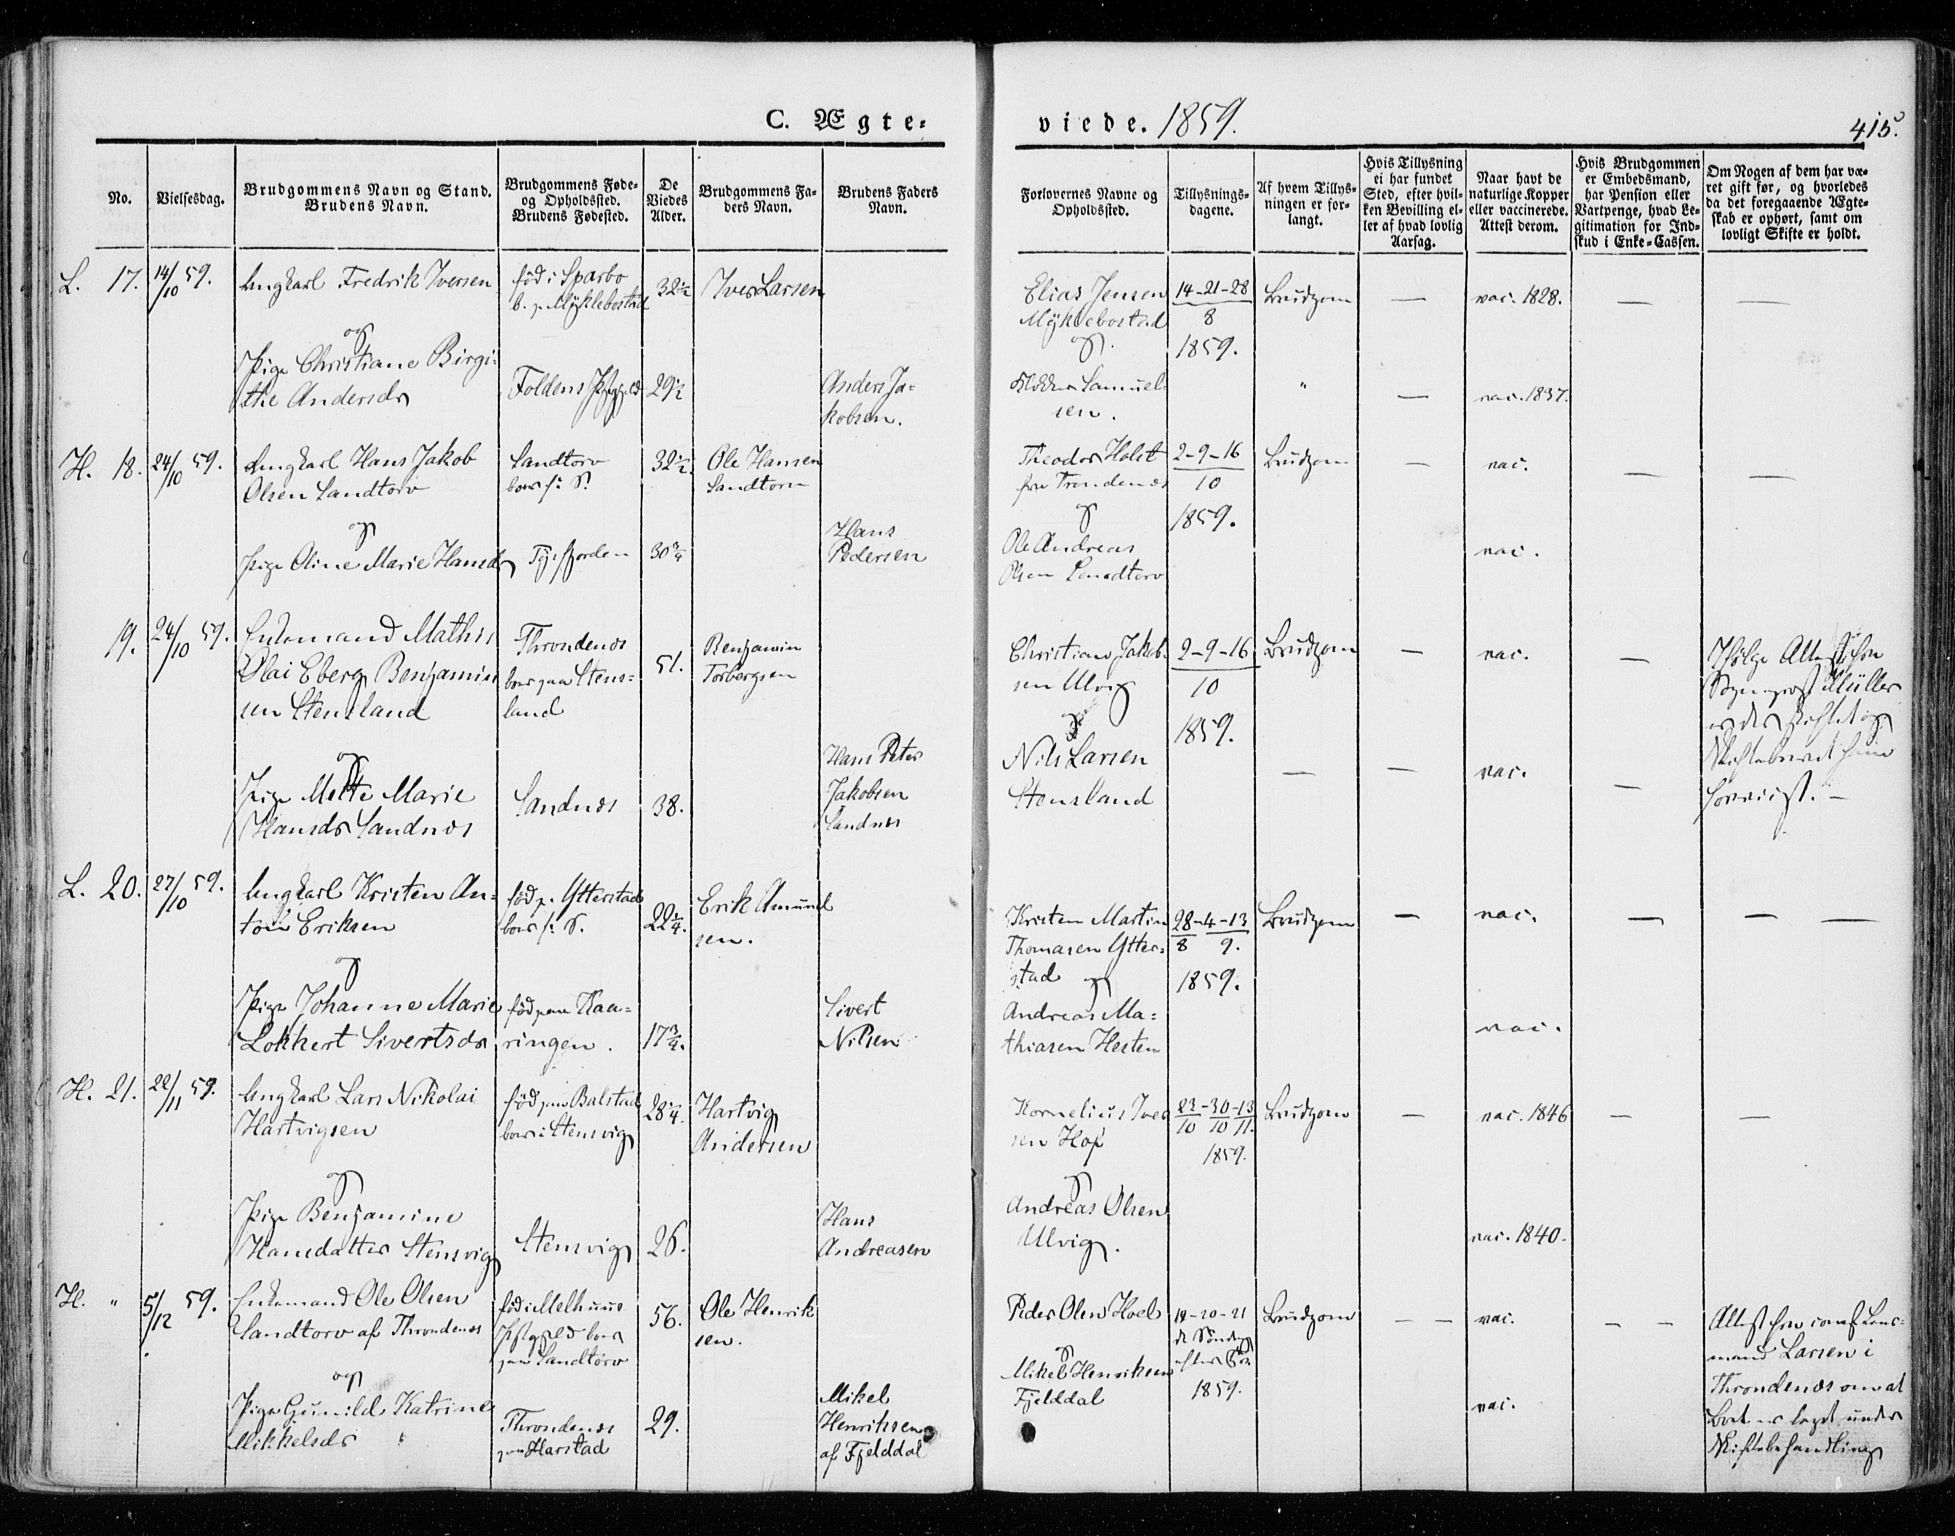 C. Ægte- viede. 1859. 415.
No.
Vielsesdag.
Brudgommens Navn og Stand.
Brudens Navn.
Brudgommens Føde-
og Opholdssted.
Brudens Fødested.
De
Viedes
Alder.
Brudgommens Fa-
ders Navn.
Brudens Faders
Navn.
Forlovernes Navne og
Opholdssted.
Tillysnings-
dagene.
Af hvem Tillys-
ningen er for-
langt.
Hvis Tillysning
ei har fundet
Sted, efter hvil-
ken Bevilling el-
ler af hvad lovlig
Aarsag.
Naar havt de
naturlige Kopper
eller vaccinerede.
Attest derom.
Hvis Brudgommen
er Embedsmand,
har Pension eller
Vartpenge, hvad Le-
gitimation for Ind-
skud i Enke-Cassen.
Om Nogen af dem har væ-
ret gift før, og hvorledes
da det foregaaende Ægte-
skab er ophørt, samt om
lovligt Skifte er holdt.
L. 17. 14/10 59.
Ungkarl Fredrik Iversen
og
Pige Christiane Birgi-
the Andersdr
fød i Sparbo
b. p. Myklebostad
Foldens
32½
29½
Iver Larsen
Anders Ja-
kobsen.
Elias Jensen
Myklebostad
og
Samuel-
sen.
14-21-28
8
1859.
Brudgom
"
—
—
vac. 1828.
vac. 1837.
—
—
H. 18. 24/10 59.
Ungkarl Hans Jakob
Olsen Sandtorv
og
Pige Oline Marie Hansdr
Sandtorv
boer s: S.
30¾
32½
Ole Hansen
Sandtorv
Hans
Pedersen
Theodor Holst
fra Trondenes
og
Ole Andreas
Olsen Sandtorv
2-9-16
10
1859.
Brudgom
—
vac.
vac.
—
—
19. 24/10 59.
Enkemand Mathis
Olai Eberg Benjamin-
sen Stensland
og
Pige Mette Marie
Hansdr Sandnes
Throndenes
boer paa Stens-
land
Sandnes
51.
38.
Benjamin
Torbergsen
Hans Peter
Jakobsen
Sandnes
Christian Jakob-
sen Ulvig
og
Nils Larsen
Stensland
2-9-16
10
1859.
Brudgom
—
—
—
vac.
vac.
—
—
Ifølge Attest fra
Sogneprest Müller
L. 20. 27/10 59.
Ungkarl Kristen An-
ton Eriksen
og
Pige Johanne Marie
Lokkert Sivertsdr
fød p. Ytterstad
boer s: S.
fød paa Kaa-
ringen.
22¼.
17¾.
Erik Amund
sen.
Sivert
Nilsen
Kristen Martin
Thomasen Ytter-
stad og
Andreas Ma-
thiasen Hesten
28-4-13
8 9.
1859.
Brudgom
—
vac.
vac.
—
— —
H. 21. 22/11 59.
Ungkarl Lars Nikolai
Hartvigsen
og
Pige Benjamine
Hansdatter Stensvig
fød paa Balstad
boer i Stensvig
Stensvig
28¼.
26.
Hartvig
Andersen
Hans
Andreasen
Kornelius Iver
sen Hof
og
Andreas Olsen
Ulvig.
23-30-13
10 10 11.
1859.
Brudgom
—
vac. 1846
vac. 1840.
—
—
H. " 5/12 59.
Enkemand Ole Olsen
Sandtorv af Throndenes
og
Pige Gunild Katrine
Mikkelsdr
fød i Melhuus
Pstgjeld boer
paa Sandtorv
Throndenes
paa Harstad
56.
29.
Ole Henrik
sen.
Mikel
Henriksen
af Fjelddal
Peder Olsen Hoel
og
Mikel Henriksen
Fjelddal
19-20-21
1859.
Brudgom
— —
vac.
vac.
— —
Attest fra const. Lens-
mand Larsen i
Throndenes om at
Boet er taget under
Skiftebehandling